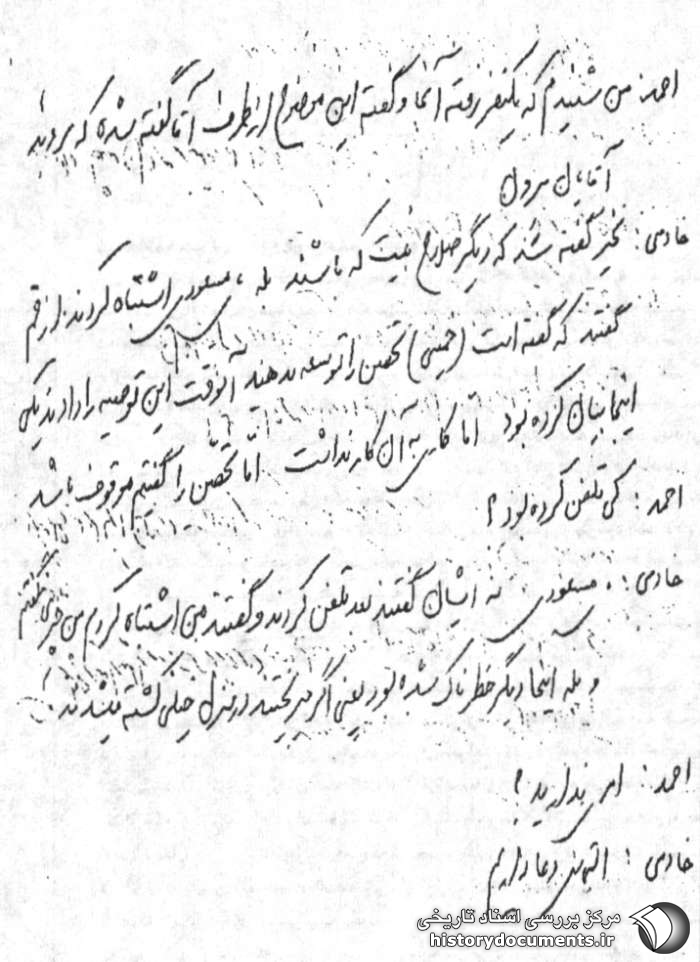 احمد: من شنیدم که یکنفر رفته آنجا و گفته این موضوع از طرف آقا گفته شده که بروند
آقایان بروند
خادمی: خیر گفته شد که دیگر صلاح نیست که باشند بله، مسعودی اشتباه کردند از قم
گفتند که گفته است (خمینی) تحصن را توسعه بدهید آنوقت این توصیه را دادند یکی
اینجا بیان کرده بود اما کاری به آن کار نداشت اما تحصن را گفتیم موقوف باشد
احمد: کی تلفن کرده بود؟
خادمی: مسعودی به ایشان گفتند بعد تلفن کردند و گفتند من اشتباه کردم من حرفی نگفتم
و بله اینجا دیگر خطرناک شده بود یعنی اگر میریختند در منزل خیلی کشته میشدند
احمد: امری ندارید؟
خادمی: التماس دعا داریم
مرکز بررسی اسناد تاریخی
historydocuments.ir